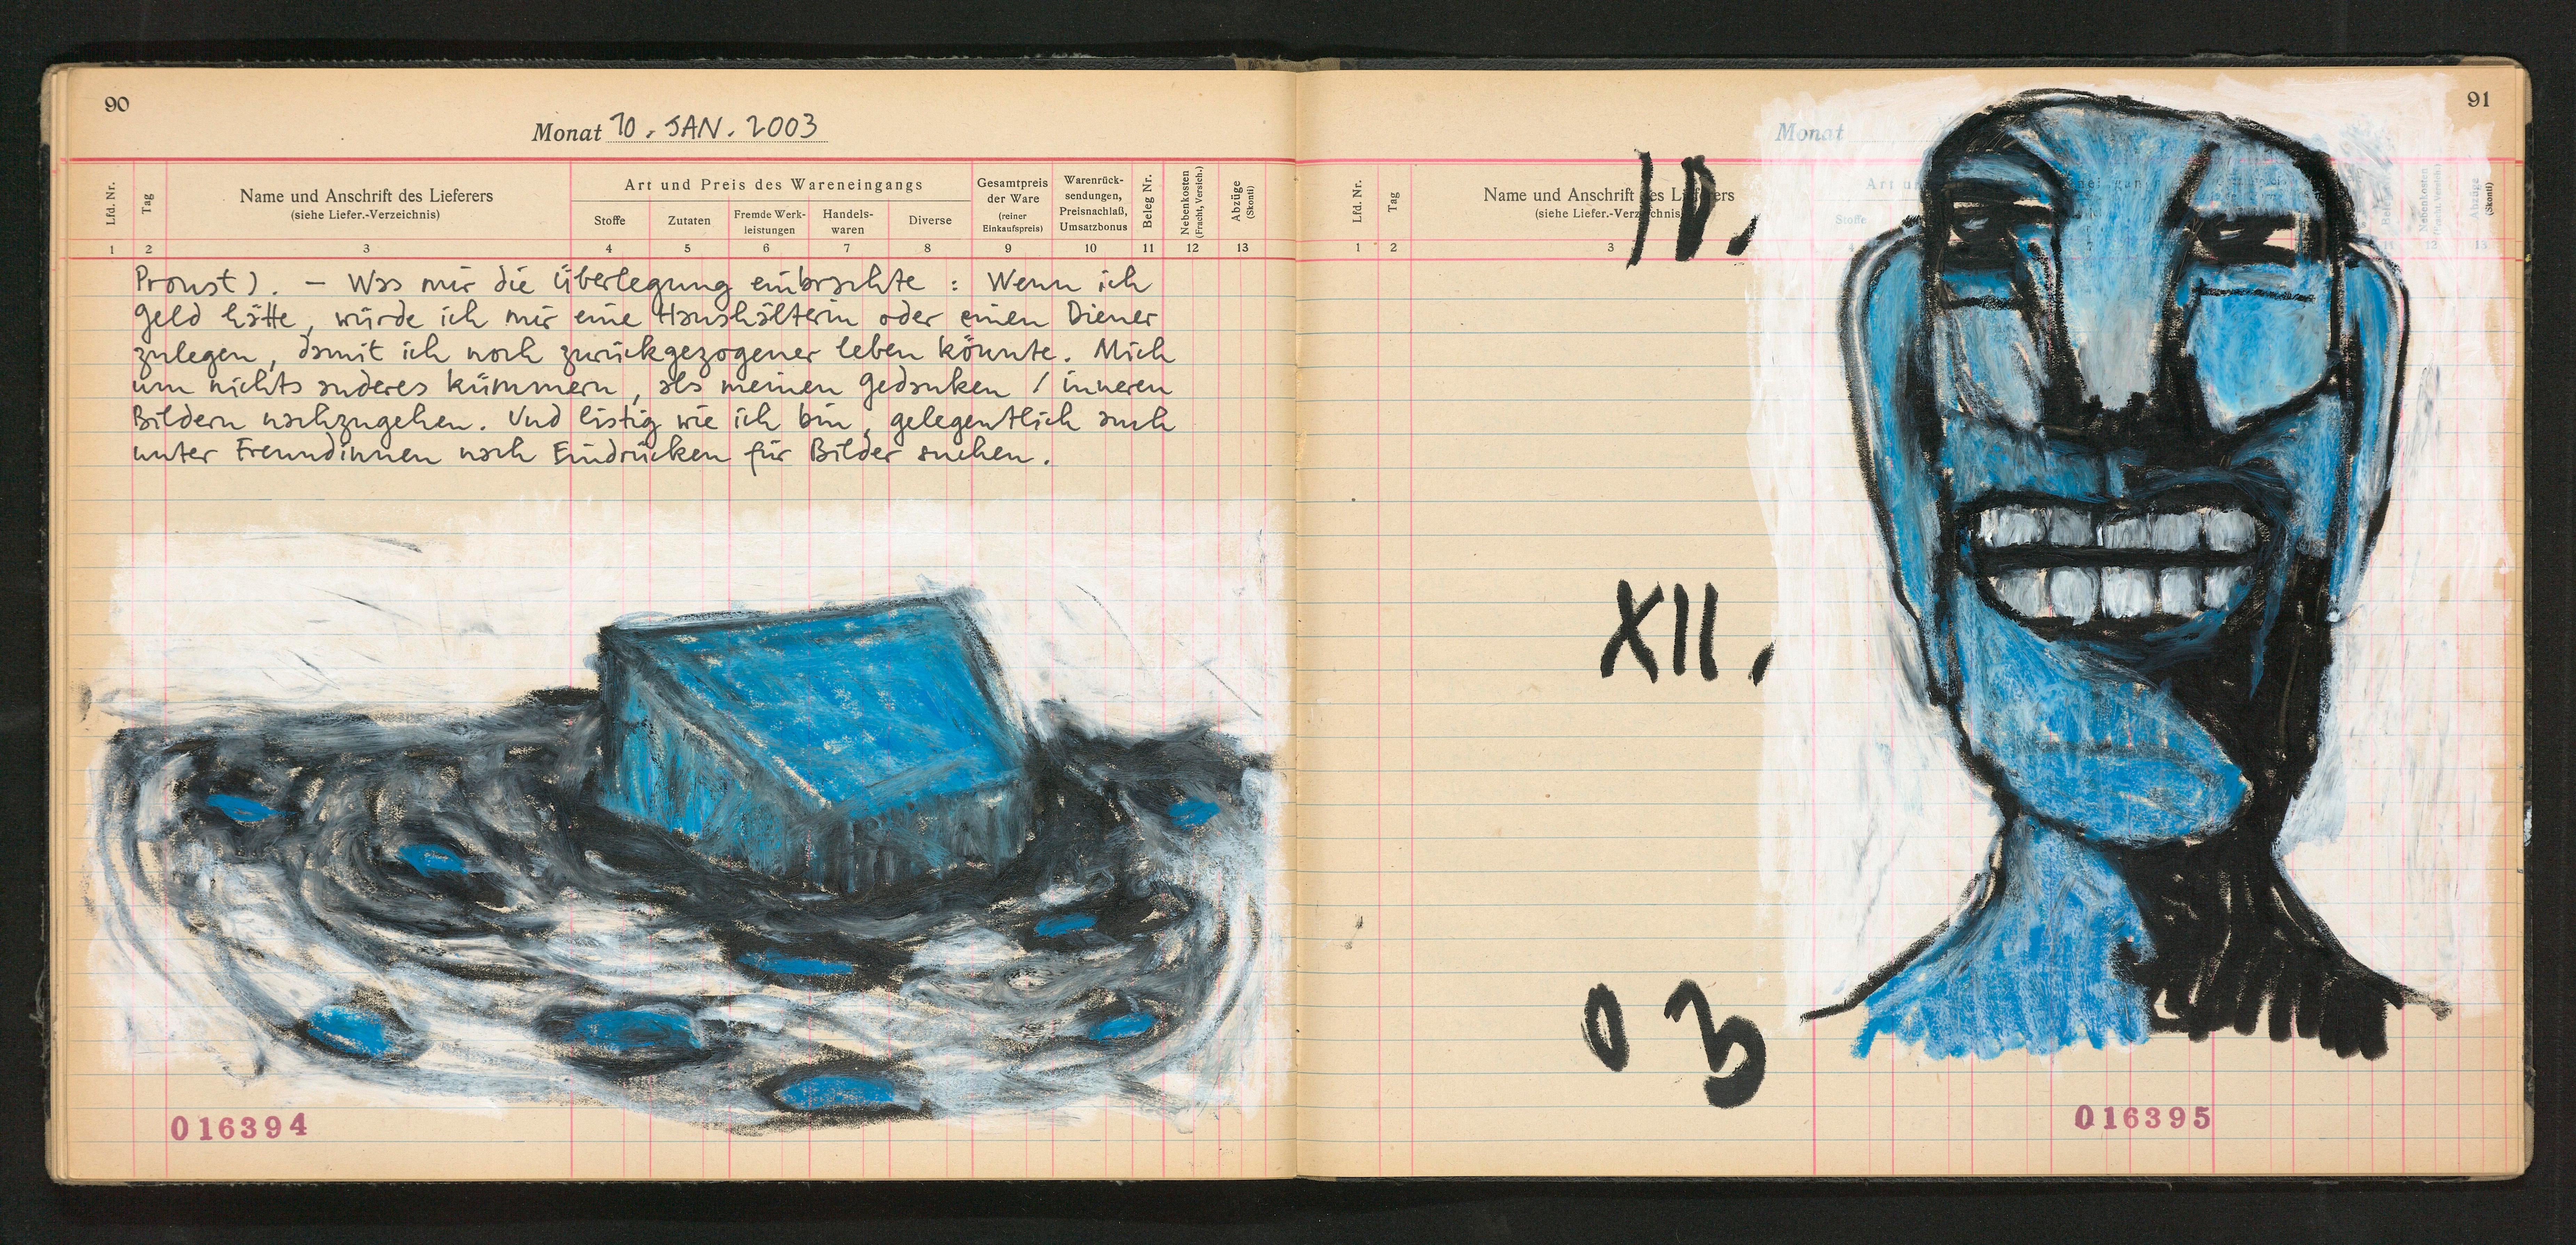 90
Monat 10. JAN. 2003
Lfd. Nr.
Tag
Name und Anschrift des Lieferers
(siehe Liefer.-Verzeichnis)
Art und Preis des Wareneingangs
Stoffe
Zutaten
Fremde Werk-
leistungen
Handels-
waren
Diverse
Gesamtpreis
der Ware
(reiner
Einkaufspreis)
Warenrück-
sendungen,
Preisnachlaß,
Umsatzbonus
Beleg Nr.
Nebenkosten
(Fracht, Versich.)
Abzüge
(Skonti)
1 2 3 4 5 6 7 8 9 10 11 12 13
Proust). – Was mir die Überlegung einbrachte : Wenn ich
Geld hätte, würde ich mir eine Haushälterin oder einen Diener
zulegen, damit ich noch zurückgezogener leben könnte. Mich
um nichts anderes kümmern, als meinen Gedanken / inneren
Bildern nachzugehen. Und listig wie ich bin, gelegentlich auch
unter Freundinnen nach Eindrücken für Bilder suchen.
016394
91
Monat
Lfd. Nr.
Tag
Name und Anschrift des Lieferers
(siehe Liefer.-Verzeichnis)
Art
Stoffe
Nebenkosten
Abzüge
(Skonti)
1 2 3
10.
XII.
03
016395